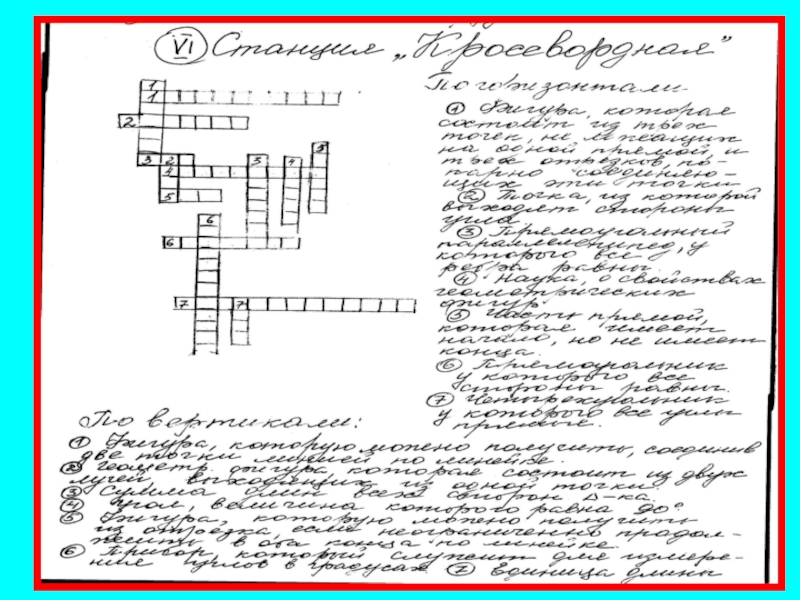 VI Станция „Кроссвордная”
По горизонтали.
① Фигура, которая
состоит из трех
точек, не лежащих
на одной прямой, и
трех отрезков, по-
парно соединяю-
щих эти точки
② Точка, из которой
выходят стороны
угла.
③ Прямоугольный
параллелепипед, у
которого все
ребра равны.
④ Наука, о свойствах
геометрических
фигур
⑤ Часть прямой,
которая имеет
начало, но не имеет
конца.
⑥ Прямоугольник
у которого все
стороны равны.
⑦ Четырехугольник
у которого все углы
прямые.
По вертикали:
① Фигура, которую можно получить, соединив
две точки линией по линейке.
② Геометр. фигура, которая состоит из двух
лучей, выходящих из одной точки.
③ Сумма длин всех сторон Δ-ка.
④ Угол, величина которого равна 90°
⑤ Фигура, которую можно получить
из отрезка, если неограниченно продол-
жить в оба конца по линейке
⑥ Прибор, который служит для измере-
ния углов в градусах. ⑦ Единица длины
1
1
2
3 2 3 4 5
4
5
6
6
7 7